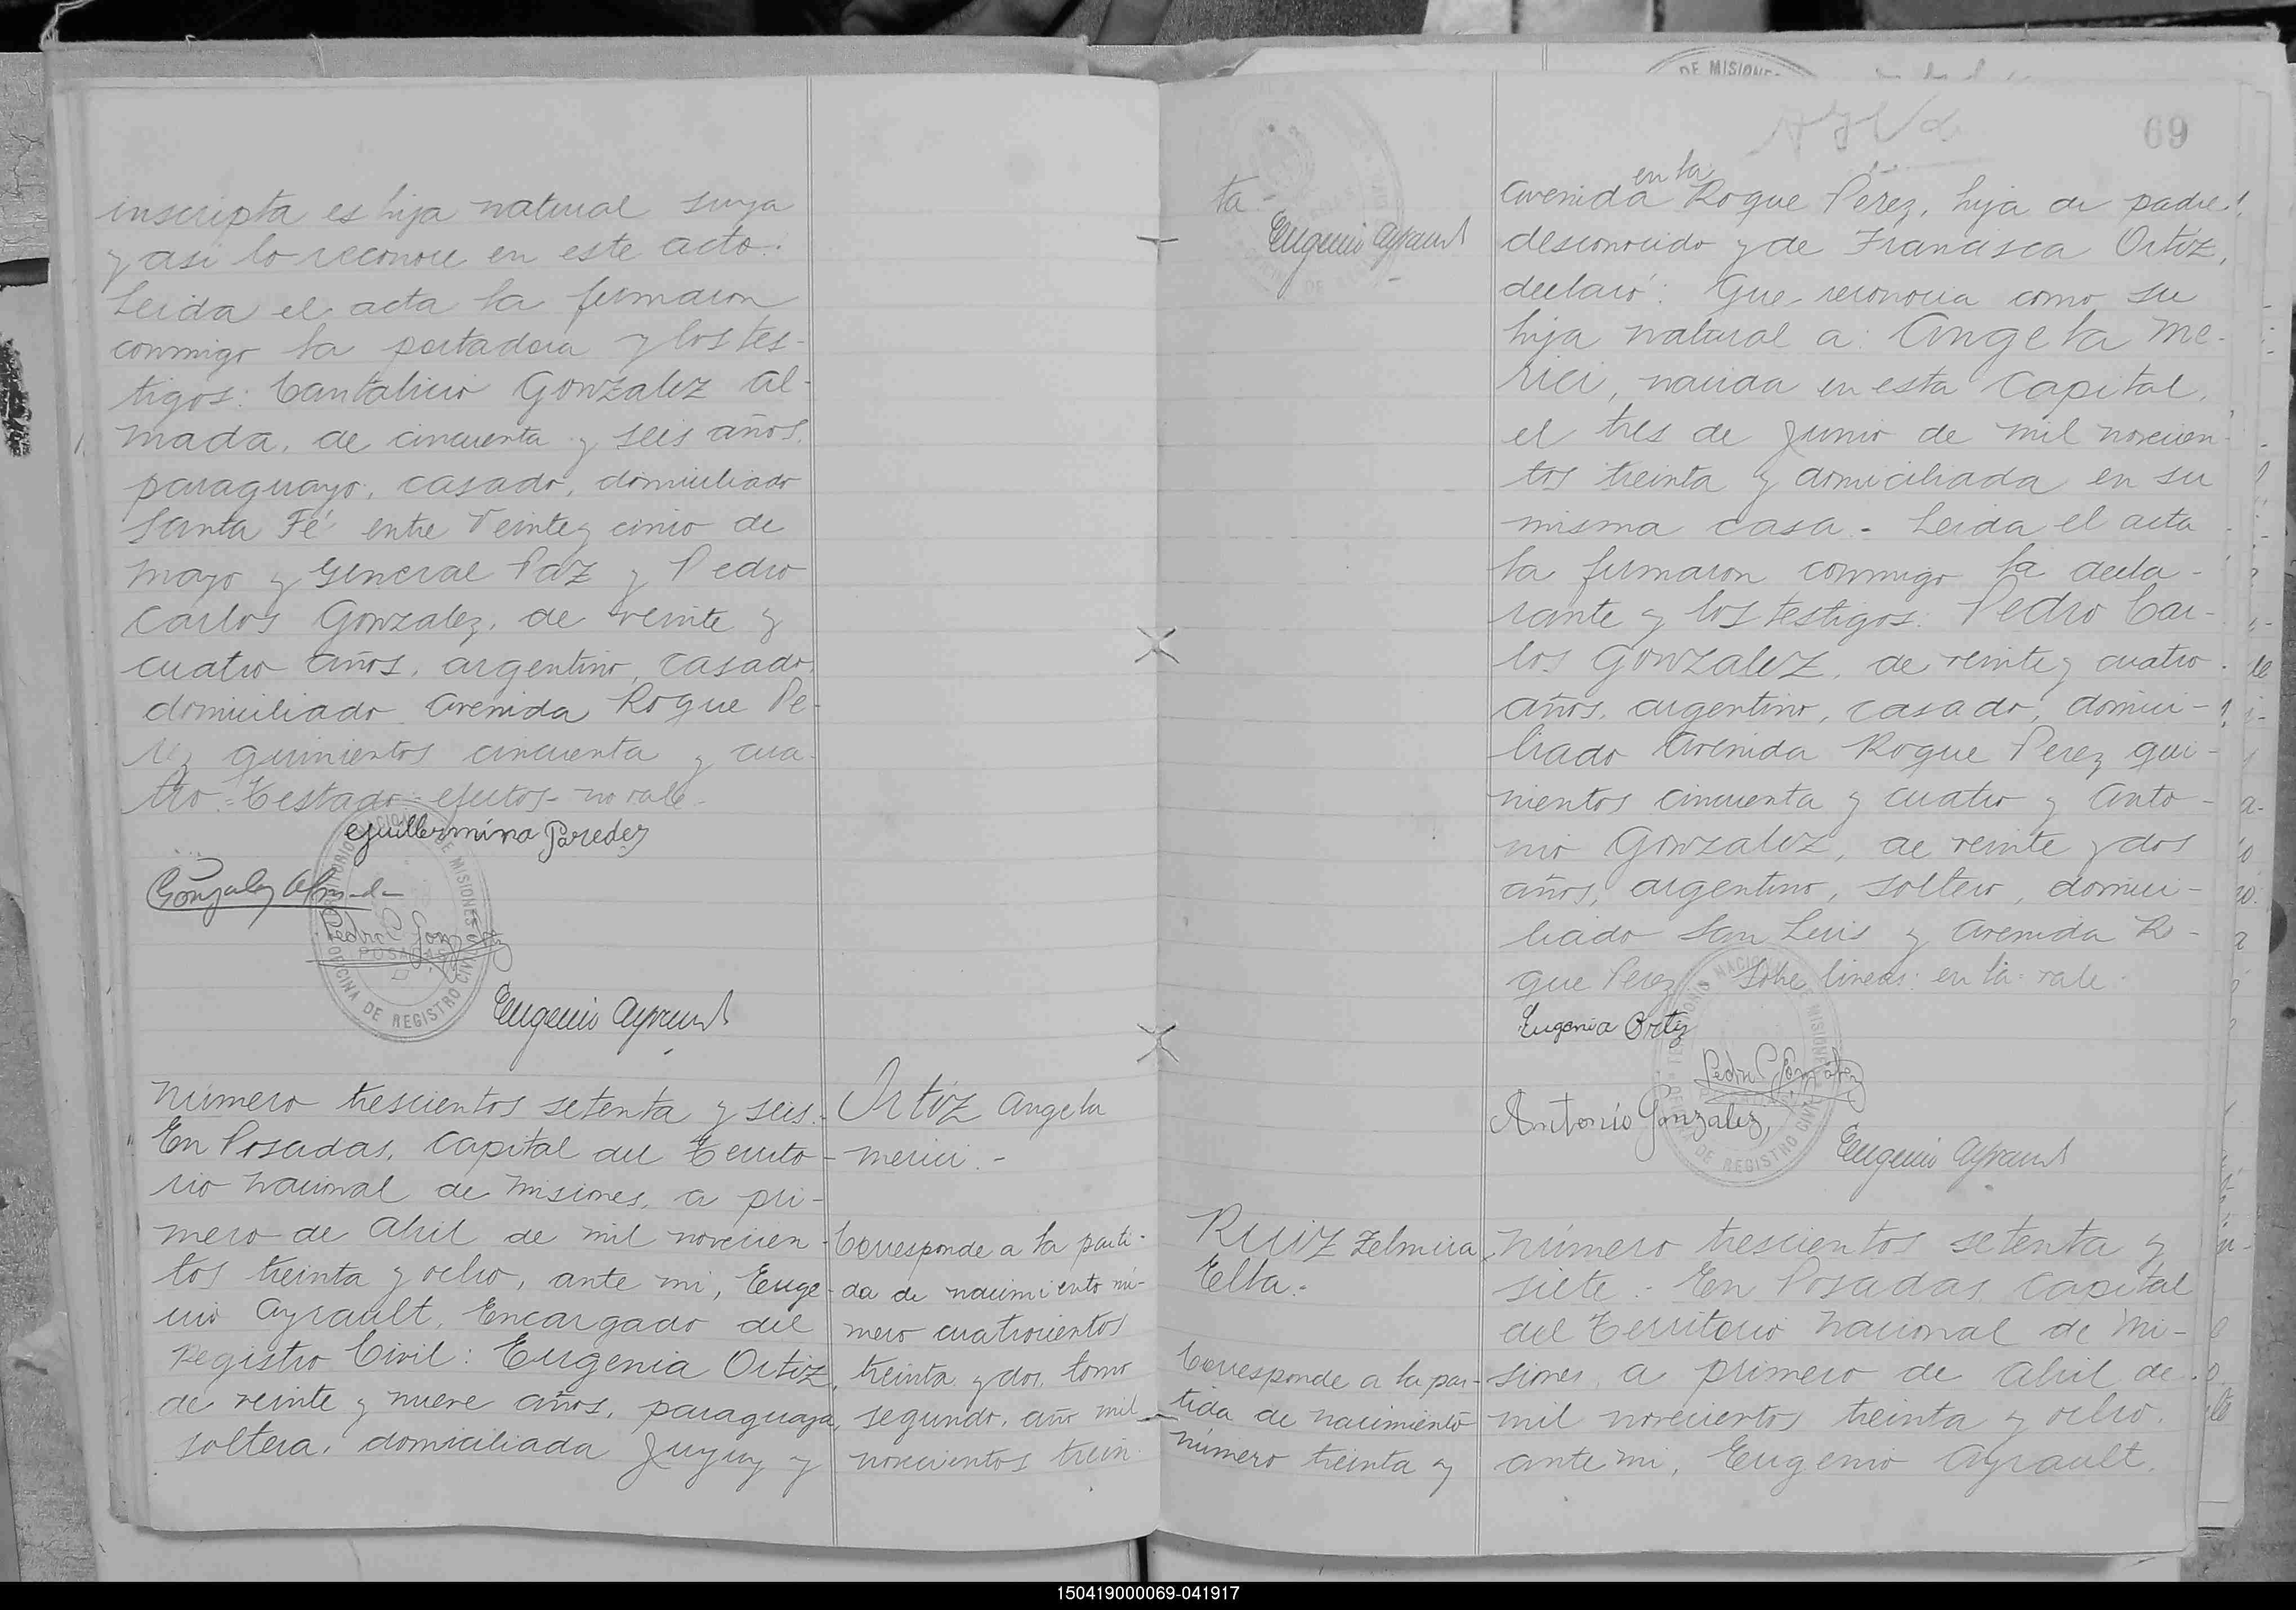 inscripta es hija natural suya
y asi lo reconoce en este acto.
Leida el acta la firmaron
conmigo la portadora y los tes-
tigos: Cantalicio Gonzalez Al-
mada, de cincuenta y seis años,
paraguayo, casado, domiciliado
Santa Fé entre Veinte y cinco de
Mayo y General Paz y Pedro
Carlos Gonzalez, de veinte y
cuatro años, argentino, casado,
domiciliado Avenida Roque Pe-
rez quinientos cincuenta y cua-
tro.=Testado: efectos- no vale.-
Guillermina Paredes
Gonzalez Almada
Pedro C Gonzalez
Eugenio Ayrault
TERRITORIO NACIONAL DE MISIONES
POSADAS
OFICINA DE REGISTRO CIVIL
Número trescientos setenta y seis.-
En Posadas, Capital del Territo-
rio Nacional de Misiones, a pri-
mero de Abril de mil novecien-
tos treinta y ocho, ante mi, Euge-
nio Ayrault, Encargado del
Registro Civil: Eugenia Ortiz,
de veinte y nueve años, paraguaya,
soltera, domiciliada Jujuy y
Ortiz Angela
merici.-
Corresponde a la parti-
da de nacimiento nú-
mero cuatrocientos
treinta y dos, tomo
segundo, año mil
novecientos trein-
ta-
Eugenio Ayrault
DE MISIONE
69
en la
Avenida Roque Pérez, hija de padre
desconocido y de Francisca Ortiz,
declaró: Que reconocia como su
hija natural a: Angela Me-
rici, nacida en esta Capital,
el tres de Junio de mil novecien-
tos treinta y domiciliada en su
misma casa.- Leida el acta
la firmaron conmigo la decla-
rante y los testigos: Pedro Car-
los Gonzalez, de veinte y cuatro
años, argentino, casado, domici-
liado Avenida Roque Perez qui-
nientos cincuenta y cuatro y Anto-
nio Gonzalez, de veinte y dos
años, argentino, soltero, domici-
liado San Luis y Avenida Ro-
que Perez Sobre lineas: en la- vale.
Eugenia Ortiz
Pedro C Gonzalez
Antonio Gonzalez,
Eugenio Ayrault
Ruiz Zelmira
Elba.-
Corresponde a la par-
tida de nacimiento
número treinta y
Número trescientos setenta y
siete.- En Posadas, Capital
del Territorio Nacional de Mi-
siones, a primero de Abril de
mil novecientos treinta y ocho,
ante mi, Eugenio Ayrault,
150419000069-041917